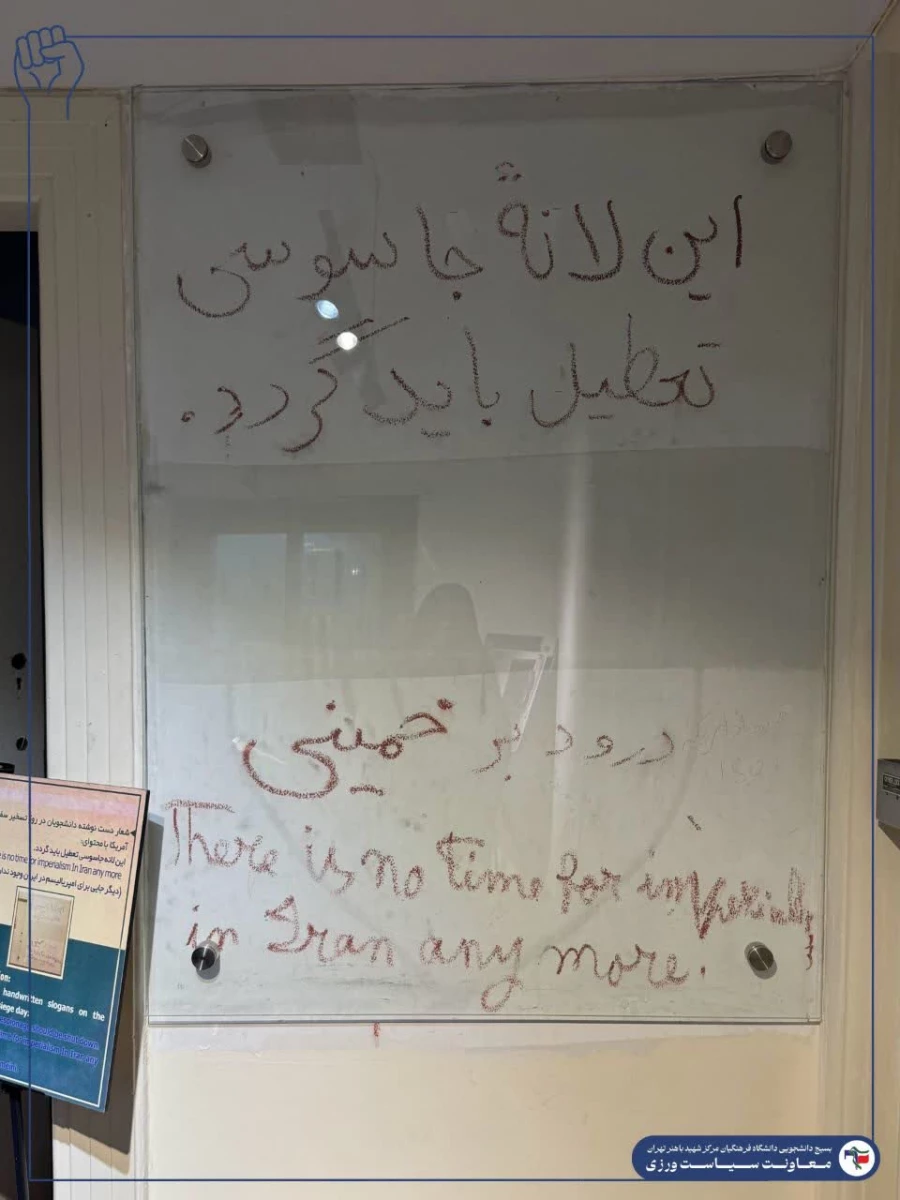 این لانهٔ جاسوسی
تعطیل باید گردد.
درود بر خمینی
There is no time for imperialism
in Iran any more.
شعار دست نوشته دانشجویان در روز تسخیر
آمریکا با محتوای:
این لانه جاسوسی تعطیل باید گردد.
is no time for imperialism In Iran any more
(دیگر جایی برای امپریالیسم در ایران وجود
handwritten slogans on the
siege day:
should be shut down.
time for imperialism In Iran any
بسیج دانشجویی دانشگاه فرهنگیان مرکز شهید باهنر تهران
معاونت سیاست ورزی